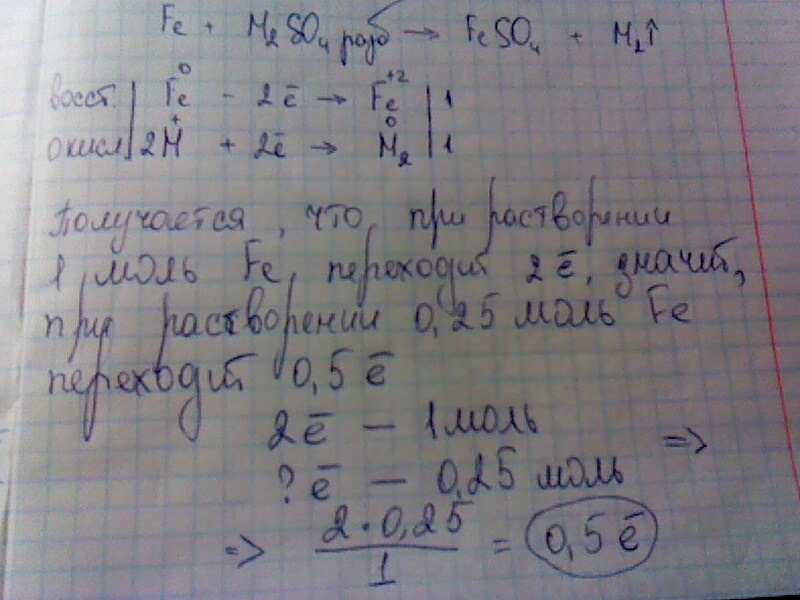 Fe + H₂SO₄ разб → FeSO₄ + H₂↑
восст. | Fe⁰ - 2ē → Fe⁺² | 1
окисл | 2H⁺ + 2ē → H₂⁰ | 1
Получается, что, при растворении
1 моль Fe, переходит 2ē, значит,
при растворении 0,25 моль Fe
переходит 0,5 ē
2ē — 1 моль
? ē — 0,25 моль =>
=> 2·0,25 / 1 = 0,5 ē